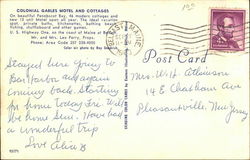 COLONIAL GABLES MOTEL AND COTTAGES
On beautiful Penobscot Bay. 46 modern cottages and
new 12 unit Motel open all year. The ideal vacation
resort, private baths, kitchenettes, bathing beach,
fishing, shuffleboard and other games.
U. S. Highway One, on the coast of Maine at
Mr. and Mrs. Leo Perry, Props.
Phone: Area Code 207 338-4000
Post Card
Stayed here going to
Bar Harbor and again
coming back. Starting
for home today Fri. Will
be home Sun. Have had
a wonderful trip
Love Alice
Mrs. W. H. Atkinson
14 E Chatham Ave
Pleasantville, New Jersey